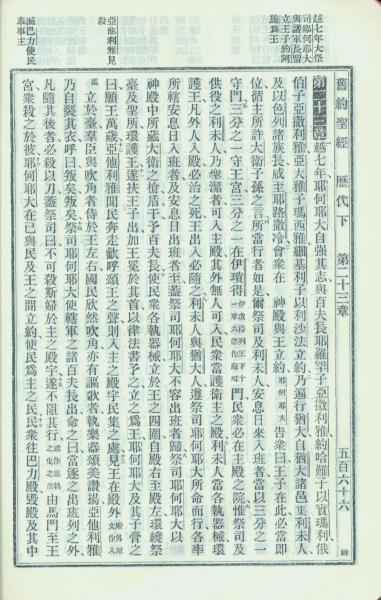 舊約聖經 歷代下 第二十三章 五百六十六
越七年大祭
司耶何耶大
與諸軍長盟
立王子約阿
施爲王
亞他利雅見
殺
滅巴力使民
奉事主
第二十三章 越七年耶何耶大自強其志與百夫長耶羅罕子亞撒利雅約哈難子以實瑪利俄
伯子亞撒利雅亞大雅子瑪西雅細基利子以利沙法立約乃遍行猶大自猶大諸邑集利未人
及以色列諸族長咸至耶路撒冷會衆在 神殿與王立約耶何耶大告衆曰王子在此必當即
位循主所許大衛子孫之言所當行者如是爾祭司及利未人安息日來入班者當以三分之一
守門三分之一守王宮三分之一在伊瑣得門民衆必在主殿之院惟祭司及
供役之利未人乃聖潔者可入主殿其外無人可入民衆當護衛主之殿利未人當各執器械環
護王凡外人入殿必治之死王出入必隨之利未人與猶大人遵祭司耶何耶大所命而行各率
所轄安息日入班者及安息日出班者至蓋祭司耶何耶大不容出班者歸祭司耶何耶大以
神殿中所藏大衛之槍盾干予百夫長使民衆各執器械立於王之四圍自殿右至殿左環繞祭
臺及聖所環護王遂扶王子出加王冕於其首以律法書予之立之爲王耶何耶大及其子膏之
曰願王萬歲亞他利雅聞民奔走歡呼頌王之聲則入主之殿至民集之處見王在殿外
立於臺羣臣與吹角者侍於王左右國民欣然吹角亦有謳歌者執樂器頌美讚揚亞他利雅
乃自裂其衣呼曰叛矣叛矣祭司耶何耶大使轄軍之諸百夫長出命之曰當逐之出班列之外
凡隨其後者必殺以刀蓋祭司曰不可殺斯婦於主之殿宇遂不阻其行由馬門至王
宮衆殺之於彼耶何耶大已與民及王之間立約使民爲主之民民衆往巴力殿毀殿及其中